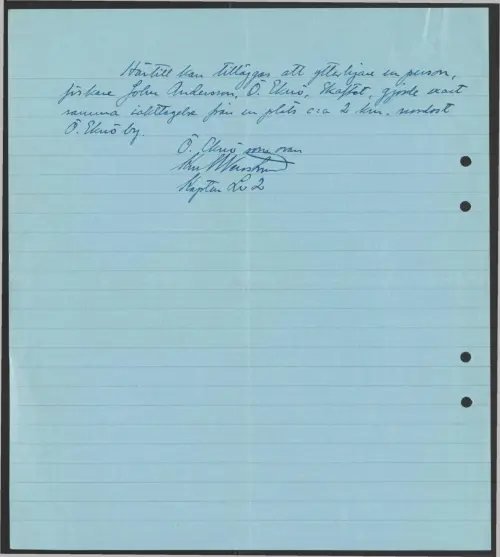 Härtill kan tilläggas att ytterligare en person,
fiskare John Andersson, Ö. Eknö, Skaftet, gjorde exakt
samma iakttagelse från en plats c:a 2 km. nordost
Ö. Eknö by.
Ö. Eknö som ovan
Kapten Lv 2